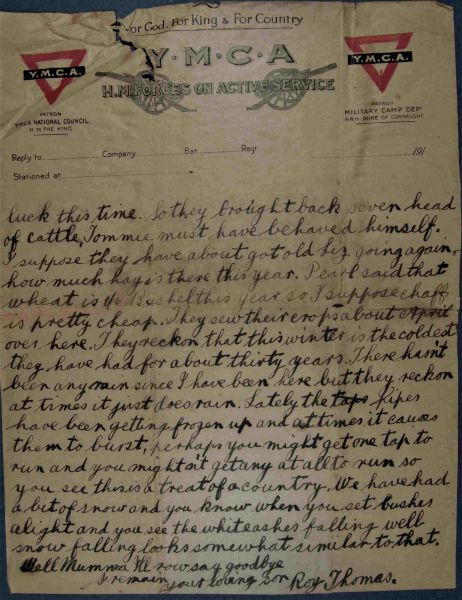 For God, For King & For Country
Y.M.C.A
H.M. FORCES ON ACTIVE SERVICE
Y.M.C.A.
PATRON
YMCA NATIONAL COUNCIL.
H.M. THE KING
Y.M.C.A.
PATRON
MILITARY CAMP DEPT
H.R.H. DUKE OF CONNAUGHT.
Reply to Company Bat. Regt. 191
Stationed at
luck this time. So they brought back seven head
of cattle, Tommie must have behaved himself.
I suppose they have about got old Liz going again.
how much hay is there this year. Pearl said that
wheat is bushel this year so I suppose chaff
is pretty cheap. They sew their crops about April
over here. They reckon that this winter is the coldest
they have had for about thirty years. There hasn't
been any rain since I have been here but they reckon
at times it just does rain. Lately the taps pipes
have been getting frozen up and at times it causes
them to burst, perhaps you might get one tap to
run and you mightn't get any at all to run so
you see this is a treat of a country. We have had
a bit of snow and you know when you set bushes
alight and you see the white ashes falling well
snow falling looks somewhat similar to that.
Well Mumma I'll now say goodbye
I remain
your loving son Roy Thomas.